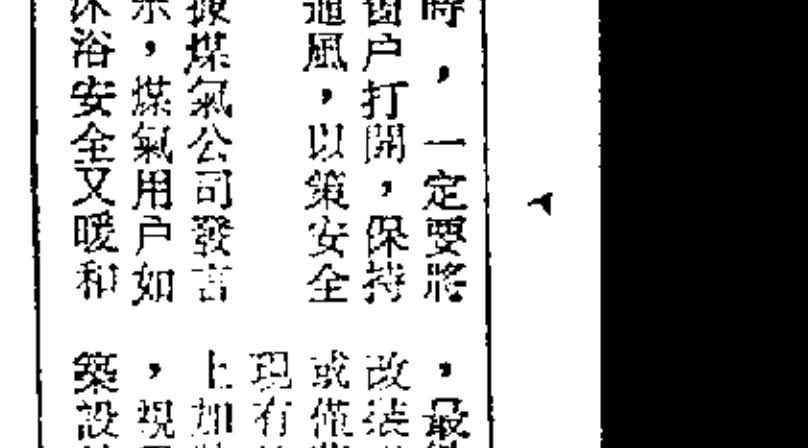 時，一定要將
窗户打開，保持
通風，以策安全
據煤氣公司發言
示，煤氣用户如
沐浴安全又暖和
，最
改裝
或僅
現有
上加
，視
築設